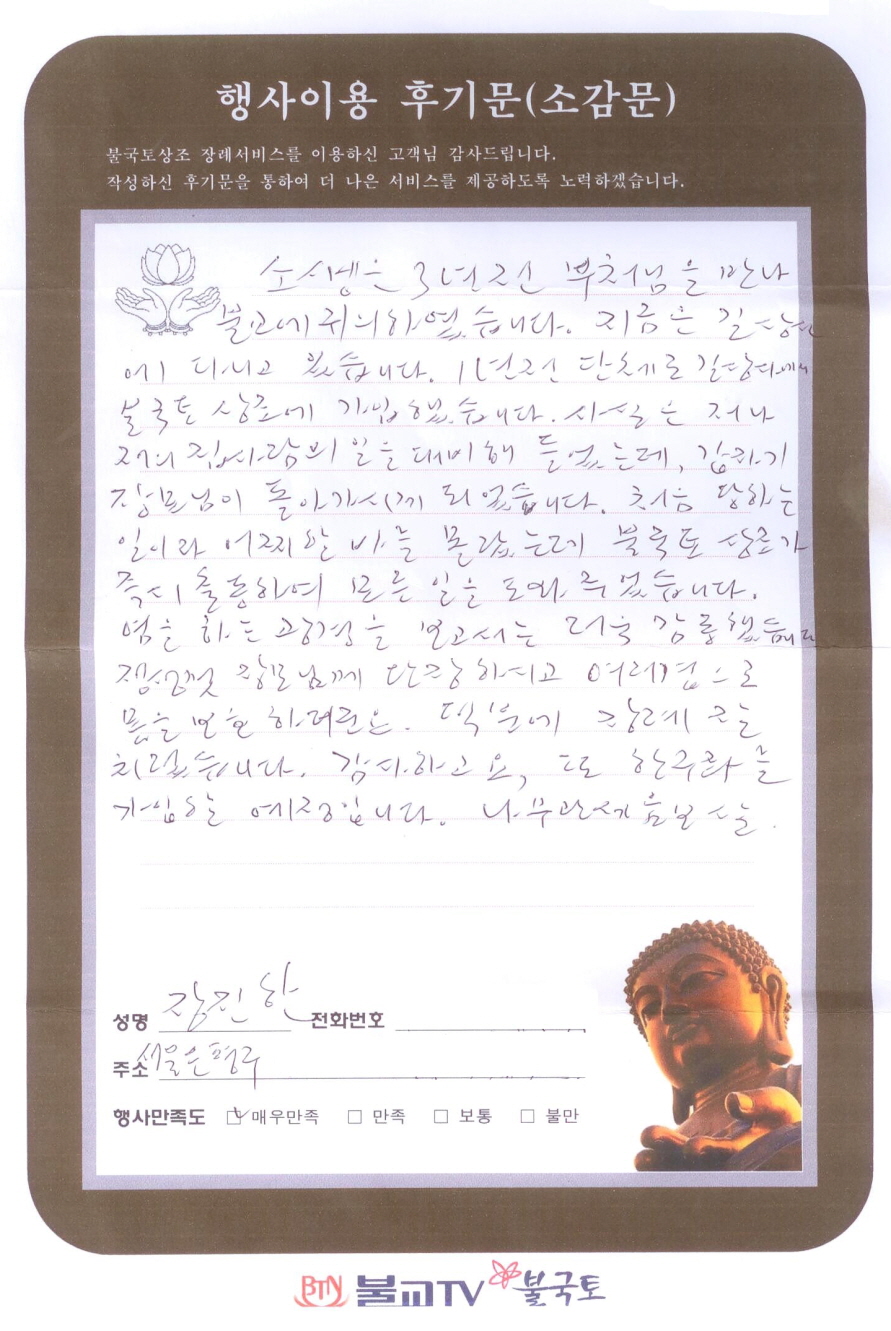 행사이용 후기문(소감문)
불국토상조 장례서비스를 이용하신 고객님 감사드립니다.
작성하신 후기문을 통하여 더 나은 서비스를 제공하도록 노력하겠습니다.
소시생은 3년전 부처님을 만나
불교에 귀의하였습니다. 지금은 길상사
에 다니고 있습니다. 1년전 단체로 길상사에서
불국토 상조에 가입했습니다. 사실은 저나
저의 집사람의 일을 대비해 들었는데, 갑자기
장모님이 돌아가시게 되었습니다. 처음 당하는
일이라 어찌할 바를 몰랐는데 불국토 상조가
즉시 출동하여 모든 일을 도와 주었습니다.
염을 하는 광경을 보고서는 더욱 감동했습니다
정성껏 장모님께 단장하시고 여러겹으로
몸을 보호 하더군요. 덕분에 장례를
치렀습니다. 감사하고요, 또 한구좌를
가입할 예정입니다. 나무관세음보살.
성명 장진한 전화번호
주소 서울은평구
행사만족도 ☑ 매우만족 □ 만족 □ 보통 □ 불만
BTN 불교TV 불국토